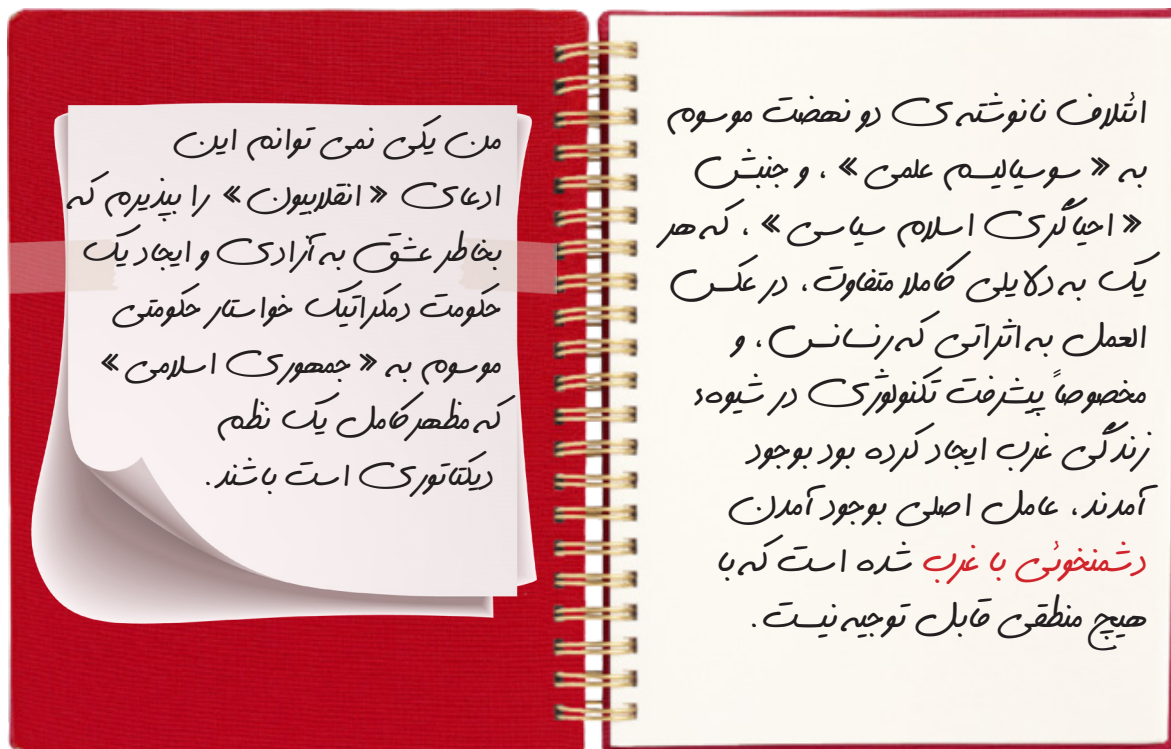 ائتلاف نانوشته ی دو نهضت موسوم
به « سوسیالیسم علمی » ، و جنبش
« احیاگری اسلام سیاسی » ، که هر
یک به دلایلی کاملا متفاوت، در عکس
العمل به اثراتی که رنسانس ، و
مخصوصاً پیشرفت تکنولوژی در شیوهء
زندگی غرب ایجاد کرده بود بوجود
آمدند ، عامل اصلی بوجود آمدن
دشمنخوئی با غرب شده است که با
هیچ منطقی قابل توجیه نیست .
من یکی نمی توانم این
ادعای « انقلابیون » را بپذیرم که
بخاطر عشق به آزادی و ایجاد یک
حکومت دمکراتیک خواستار حکومتی
موسوم به « جمهوری اسلامی »
که مظهر کامل یک نظم
دیکتاتوری است باشند .